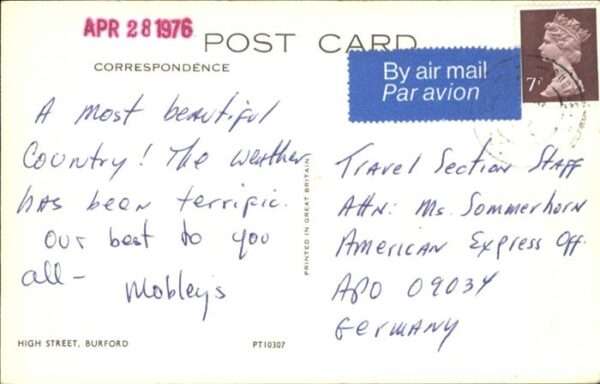 APR 28 1976
POST CARD
CORRESPONDENCE
By air mail
Par avion
7P
A most beautiful
Country! The weather
has been terrific.
Our best to you
all -
Mobleys
PRINTED IN GREAT BRITAIN
Travel Section Staff
Attn: Ms. Sommerhorn
American Express Off.
APO 09034
Germany
HIGH STREET, BURFORD
PT10307